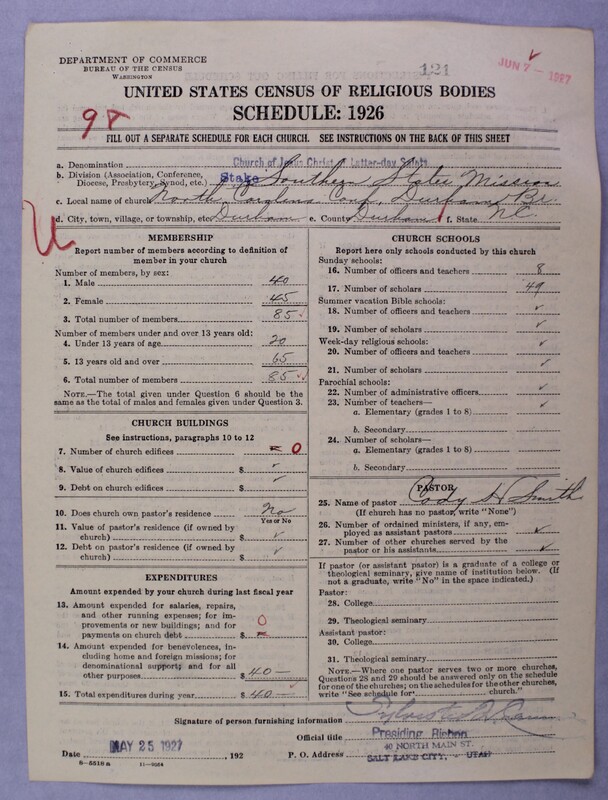 DEPARTMENT OF COMMERCE
BUREAU OF THE CENSUS
WASHINGTON
121
JUN 7 - 1927
UNITED STATES CENSUS OF RELIGIOUS BODIES
SCHEDULE: 1926
FILL OUT A SEPARATE SCHEDULE FOR EACH CHURCH. SEE INSTRUCTIONS ON THE BACK OF THIS SHEET
a. Denomination Church of Jesus Christ of Latter-day Saints
b. Division (Association, Conference, Diocese, Presbytery, Synod, etc.) Stake Southern States Mission
c. Local name of church North Carolina Conf. Durham Br.
d. City, town, village, or township, etc. Durham e. County Durham f. State N.C.
MEMBERSHIP
Report number of members according to definition of
member in your church
Number of members, by sex:
1. Male 40
2. Female 45
3. Total number of members 85
Number of members under and over 13 years old:
4. Under 13 years of age 20
5. 13 years old and over 65
6. Total number of members 85
NOTE.—The total given under Question 6 should be
the same as the total of males and females given under Question 3.
CHURCH BUILDINGS
See instructions, paragraphs 10 to 12
7. Number of church edifices 0
8. Value of church edifices $
9. Debt on church edifices $
10. Does church own pastor's residence? No
Yes or No
11. Value of pastor's residence (if owned by
church) $
12. Debt on pastor's residence (if owned by
church) $
EXPENDITURES
Amount expended by your church during last fiscal year
13. Amount expended for salaries, repairs,
and other running expenses; for im-
provements or new buildings; and for
payments on church debt $ 0
14. Amount expended for benevolences, in-
cluding home and foreign missions; for
denominational support; and for all
other purposes $ 40—
15. Total expenditures during year $ 40—
CHURCH SCHOOLS
Report here only schools conducted by this church
Sunday schools:
16. Number of officers and teachers 8
17. Number of scholars 49
Summer vacation Bible schools:
18. Number of officers and teachers
19. Number of scholars
Week-day religious schools:
20. Number of officers and teachers
21. Number of scholars
Parochial schools:
22. Number of administrative officers
23. Number of teachers—
a. Elementary (grades 1 to 8)
b. Secondary
24. Number of scholars—
a. Elementary (grades 1 to 8)
b. Secondary
PASTOR
25. Name of pastor Cody H Smith
(If church has no pastor, write "None")
26. Number of ordained ministers, if any, em-
ployed as assistant pastors
27. Number of other churches served by the
pastor or his assistants
If pastor (or assistant pastor) is a graduate of a college or
theological seminary, give name of institution below. (If
not a graduate, write "No" in the space indicated.)
Pastor:
28. College
29. Theological seminary
Assistant pastor:
30. College
31. Theological seminary
NOTE.—Where one pastor serves two or more churches,
Questions 28 and 29 should be answered only on the schedule
for one of the churches; on the schedules for the other churches,
write "See schedule for church."
Signature of person furnishing information
Official title Presiding Bishop
Date MAY 25 1927, 192
P. O. Address 40 NORTH MAIN ST.
SALT LAKE CITY, - UTAH
8—5518a 11—9064